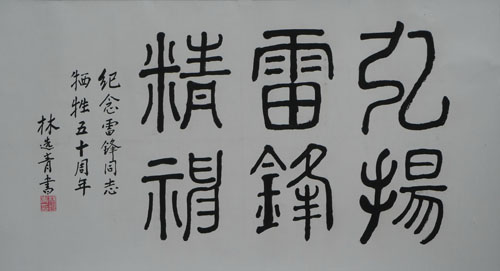 弘揚
雷鋒
精神
纪念雷锋同志
牺牲五十周年
林选青書